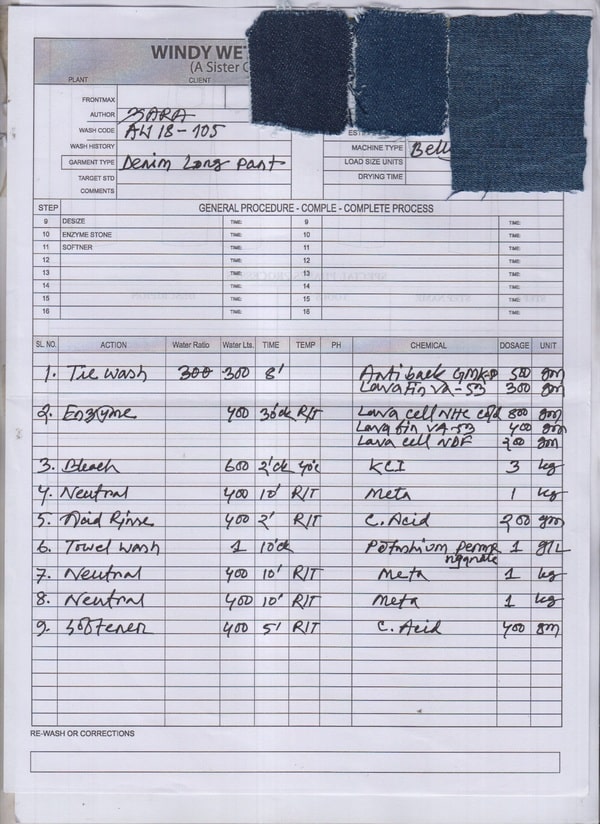 WINDY WE
(A Sister C
PLANT CLIENT
FRONTMAX
AUTHOR ZARA
WASH CODE AW 18-105
WASH HISTORY
GARMENT TYPE Denim Long Pant
TARGET STD
COMMENTS
MACHINE TYPE Bell
LOAD SIZE UNITS
DRYING TIME
STEP GENERAL PROCEDURE - COMPLE - COMPLETE PROCESS
9 DESIZE TIME: 9 TIME:
10 ENZYME STONE TIME: 10 TIME:
11 SOFTNER TIME: 11 TIME:
12 TIME: 12 TIME:
13 TIME: 13 TIME:
14 TIME: 14 TIME:
15 TIME: 15 TIME:
16 TIME: 16 TIME:
SL NO. ACTION Water Ratio Water Lts. TIME TEMP PH CHEMICAL DOSAGE UNIT
1. Tie Wash 300 300 8' Antiback 500 gm
Lava fin VA-53 300 gm
2. Enzyme 400 R/T Lava cell NHC cold 800 gm
Lava fin VA-53 400 gm
Lava cell NDF 200 gm
3. Bleach 600 2'ck 40'c KCI 3 kg
4. Neutral 400 10' R/T Meta 1 kg
5. Acid Rinse 400 2' R/T C. Acid 200 gm
6. Towel Wash 1 10'ck Potashium perma 1 g/L
nganate
7. Neutral 400 10' R/T Meta 1 kg
8. Neutral 400 10' R/T Meta 1 kg
9. Softener 400 5' R/T C. Acid 400 gm
RE-WASH OR CORRECTIONS